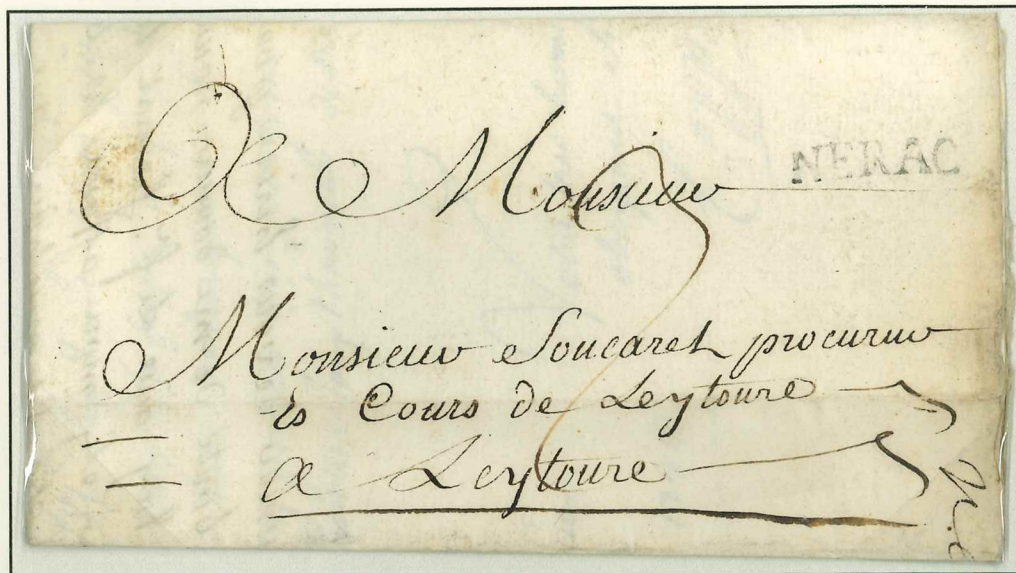 NERAC
A Monsieur
Monsieur Soucaret procureur
ès Cours de Leytoure
A Leytoure